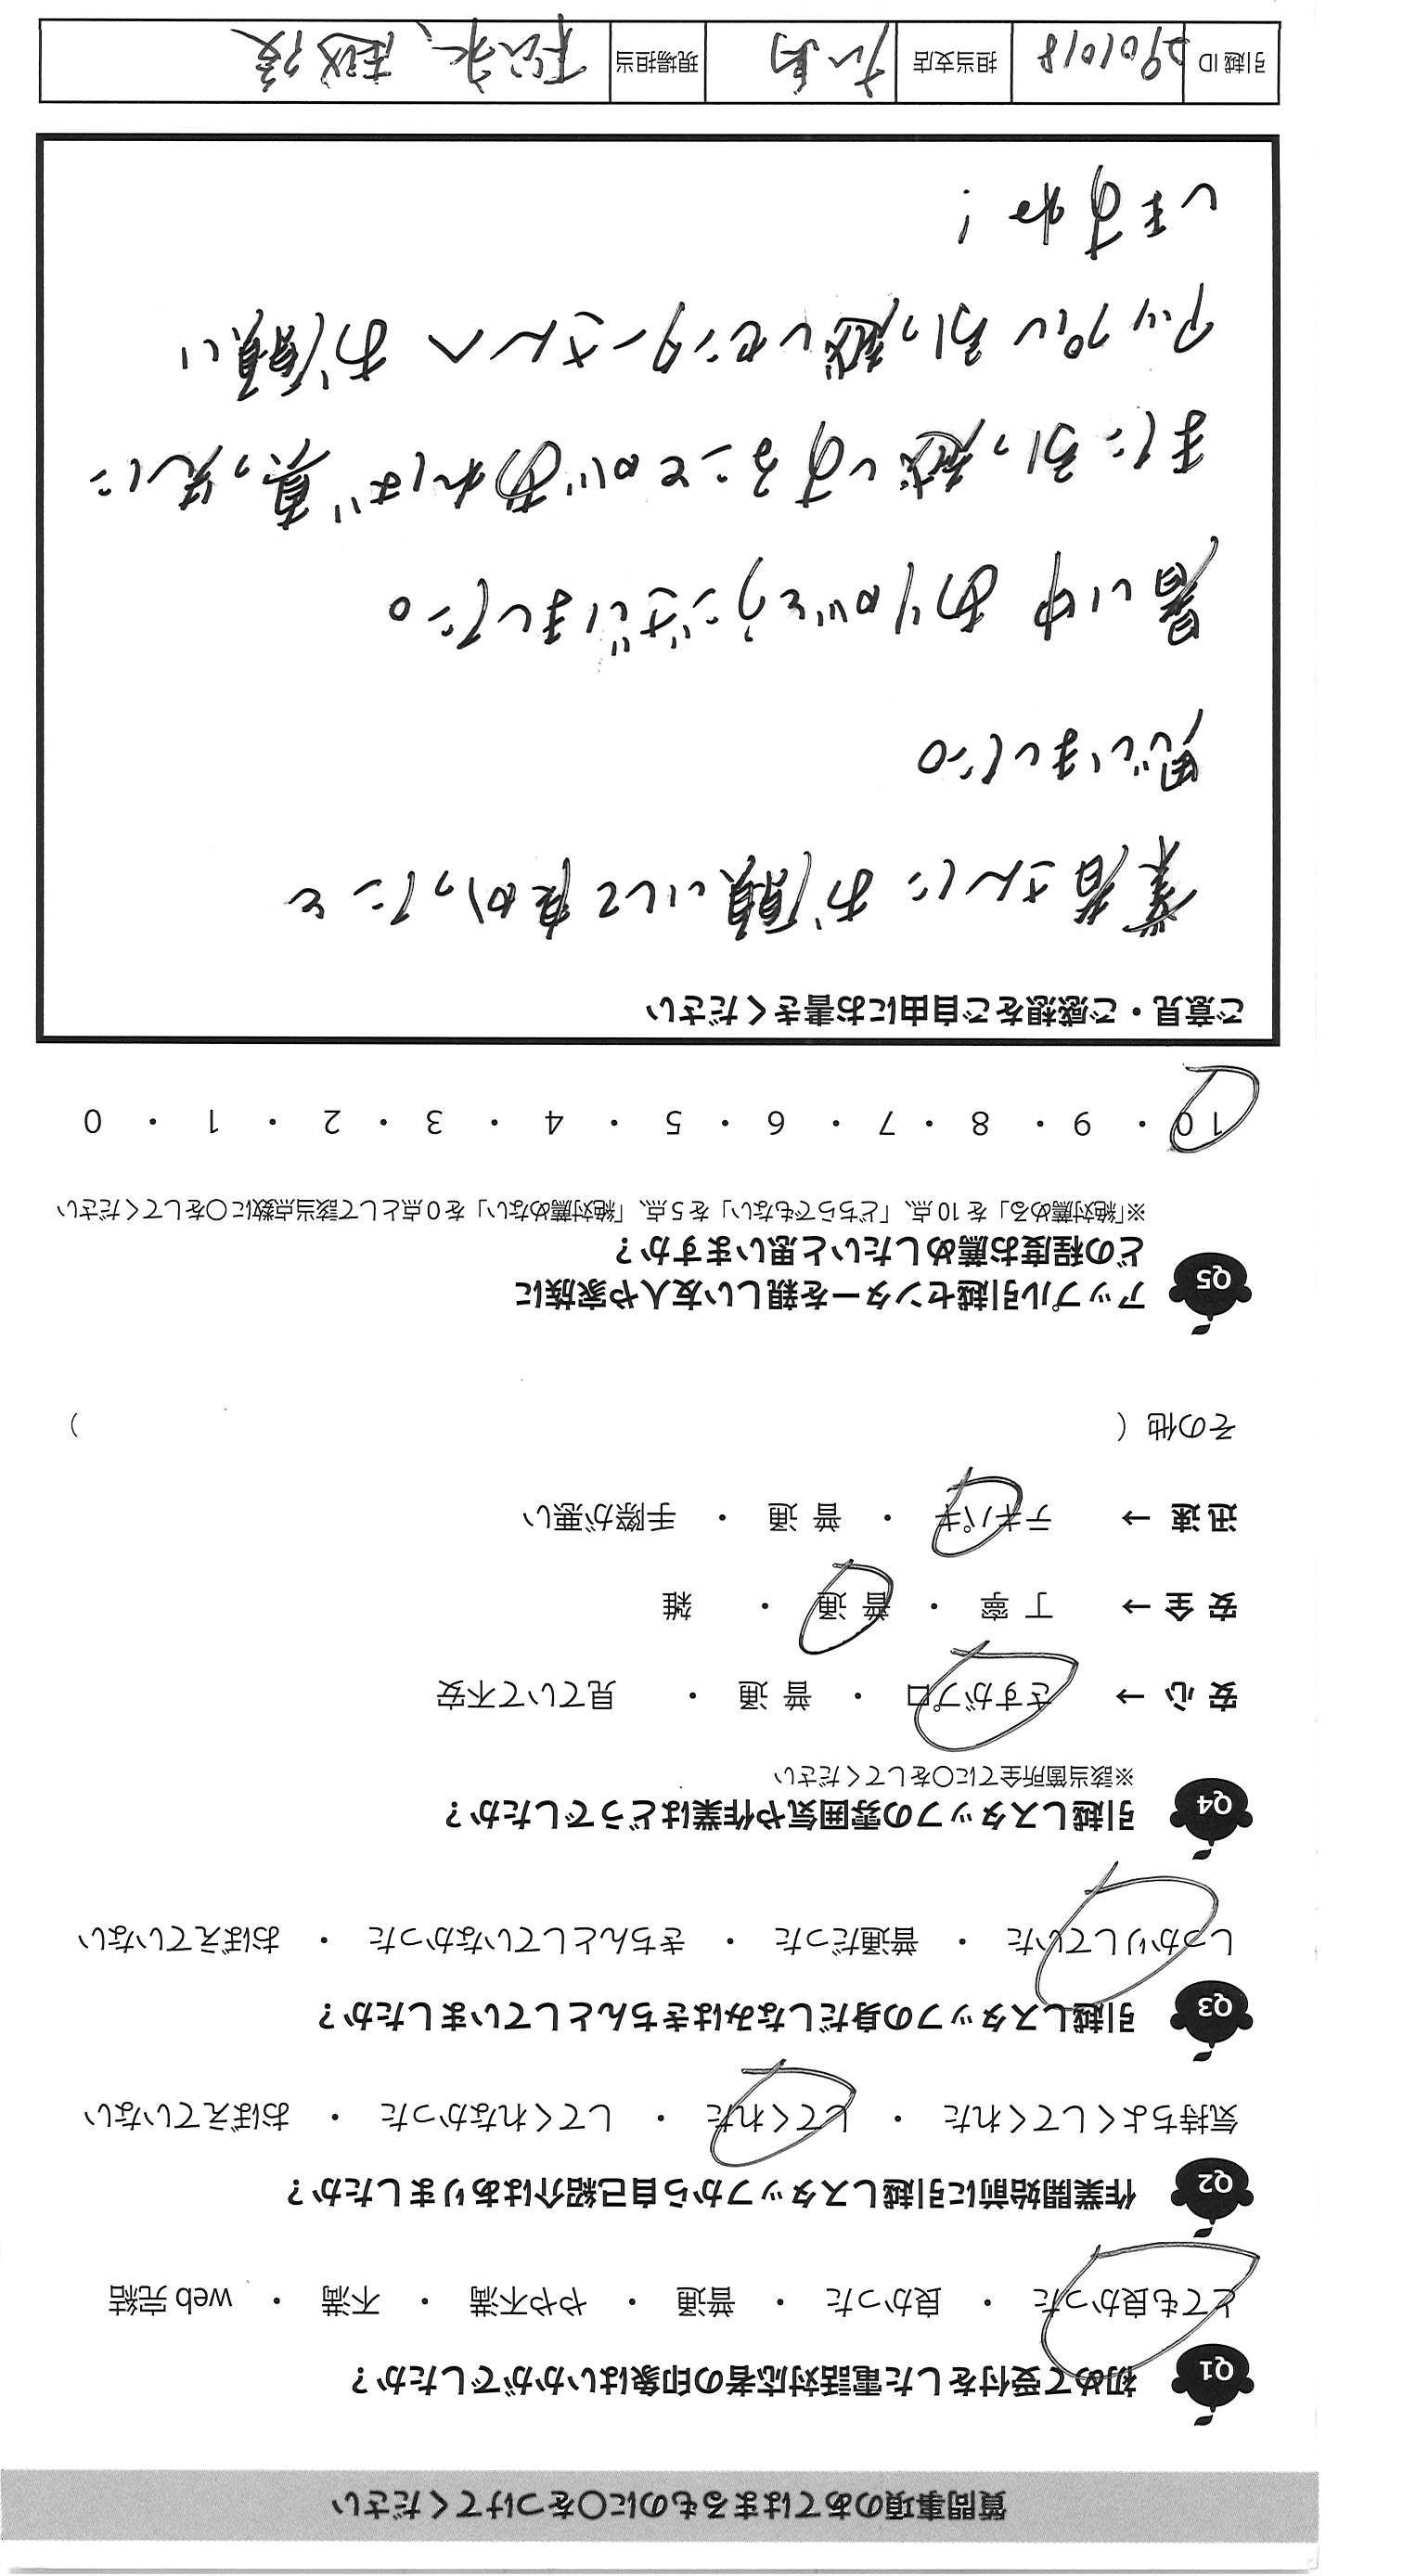 質問事項のあてはまるものに〇をつけてください
Q1 初めて受付をした電話対応者の印象はいかがでしたか？
とても良かった ・ 良かった ・ 普通 ・ やや不満 ・ 不満 ・ web 完結
Q2 作業開始前に引越しスタッフから自己紹介はありましたか？
気持ちよくしてくれた ・ してくれた ・ してくれなかった ・ おぼえていない
Q3 引越しスタッフの身だしなみはきちんとしていましたか？
しっかりしていた ・ 普通だった ・ きちんとしていなかった ・ おぼえていない
Q4 引越しスタッフの雰囲気や作業はどうでしたか？
※該当箇所全てに〇をしてください
安 心 → さすがプロ ・ 普 通 ・ 見ていて不安
安 全 → 丁 寧 ・ 普 通 ・ 雑
迅 速 → テキパキ ・ 普 通 ・ 手際が悪い
その他（ ）
Q5 アップル引越センターを親しい友人や家族に
どの程度お薦めしたいと思いますか？
※「絶対薦める」を 10 点、「どちらでもない」を 5 点、「絶対薦めない」を 0 点として該当点数に〇をしてください
10 ・ 9 ・ 8 ・ 7 ・ 6 ・ 5 ・ 4 ・ 3 ・ 2 ・ 1 ・ 0
ご意見・ご感想をご自由にお書きください
業者さんに お願いして良かったと
思いました。
暑い中 ありがとうございました。
また引っ越しすることがあれば 真っ先に
アップル引っ越しセンターさんへ お願い
しますね！
引越 ID 2901018 担当支店 現場担当 松永、